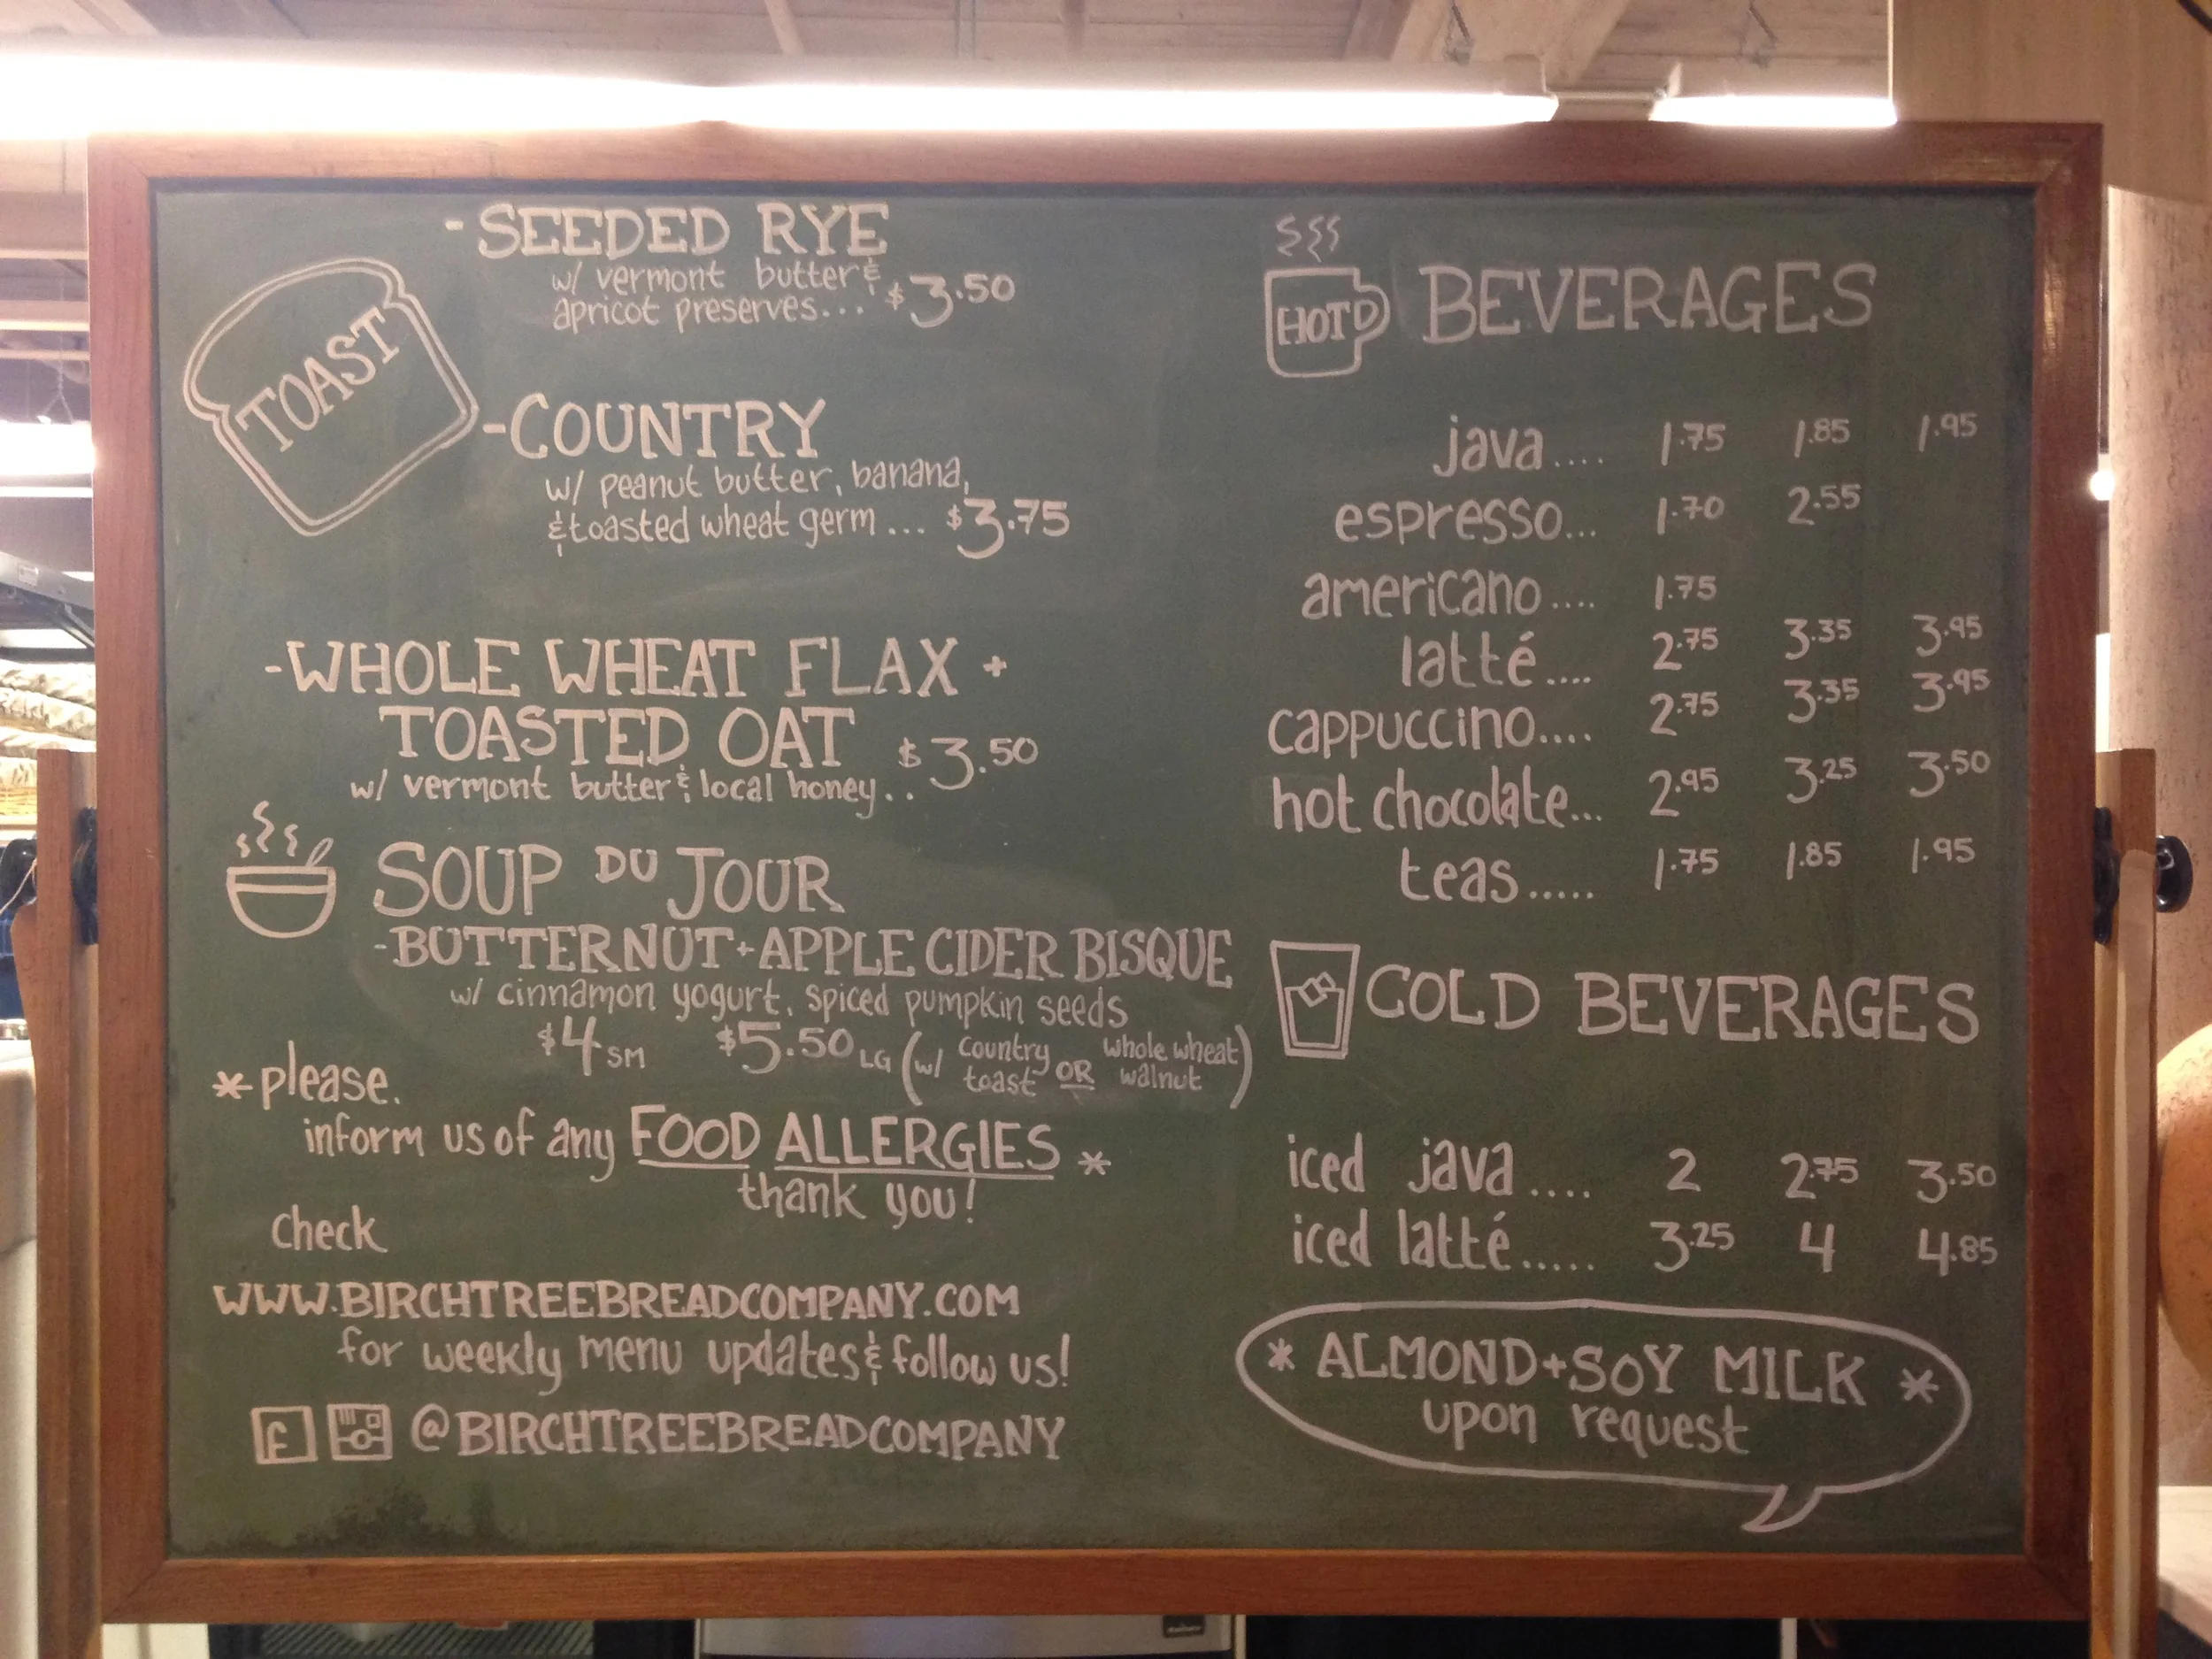 - SEEDED RYE
w/ vermont butter &
apricot preserves... $3.50
TOAST
- COUNTRY
w/ peanut butter, banana,
& toasted wheat germ ... $3.75
- WHOLE WHEAT FLAX +
TOASTED OAT $3.50
w/ vermont butter & local honey..
SOUP DU JOUR
- BUTTERNUT + APPLE CIDER BISQUE
w/ cinnamon yogurt, spiced pumpkin seeds
$4 SM $5.50 LG (w/ country toast OR whole wheat walnut)
* please.
inform us of any FOOD ALLERGIES *
thank you!
check
WWW.BIRCHTREEBREADCOMPANY.COM
for weekly menu updates & follow us!
f @BIRCHTREEBREADCOMPANY
HOT BEVERAGES
java .... 1.75 1.85 1.95
espresso... 1.70 2.55
americano .... 1.75
latté.... 2.75 3.35 3.95
cappuccino.... 2.75 3.35 3.95
hot chocolate... 2.95 3.25 3.50
teas ..... 1.75 1.85 1.95
COLD BEVERAGES
iced java .... 2 2.75 3.50
iced latté..... 3.25 4 4.85
* ALMOND + SOY MILK *
upon request